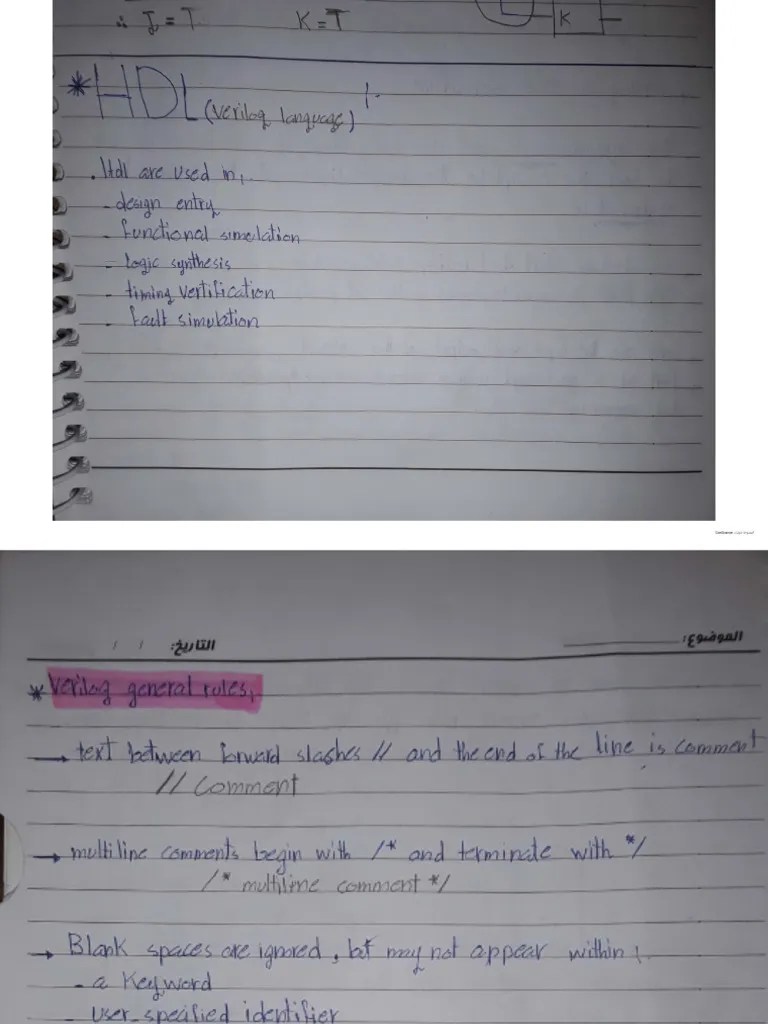 ∴ J = T K = T
K
* HDL (Verilog language) :-
. Hdl are used in,
- design entry
- functional simulation
- logic synthesis
- timing vertification
- fault simulation
CamScanner
الموضوع: التاريخ: / /
* Verilog general rules,
→ text between forward slashes // and the end of the line is comment
// Comment
→ multiline comments begin with /* and terminate with */
/* multiline comment */
→ Blank spaces are ignored, but may not appear within :
- a Keyword
- User-specified identifier